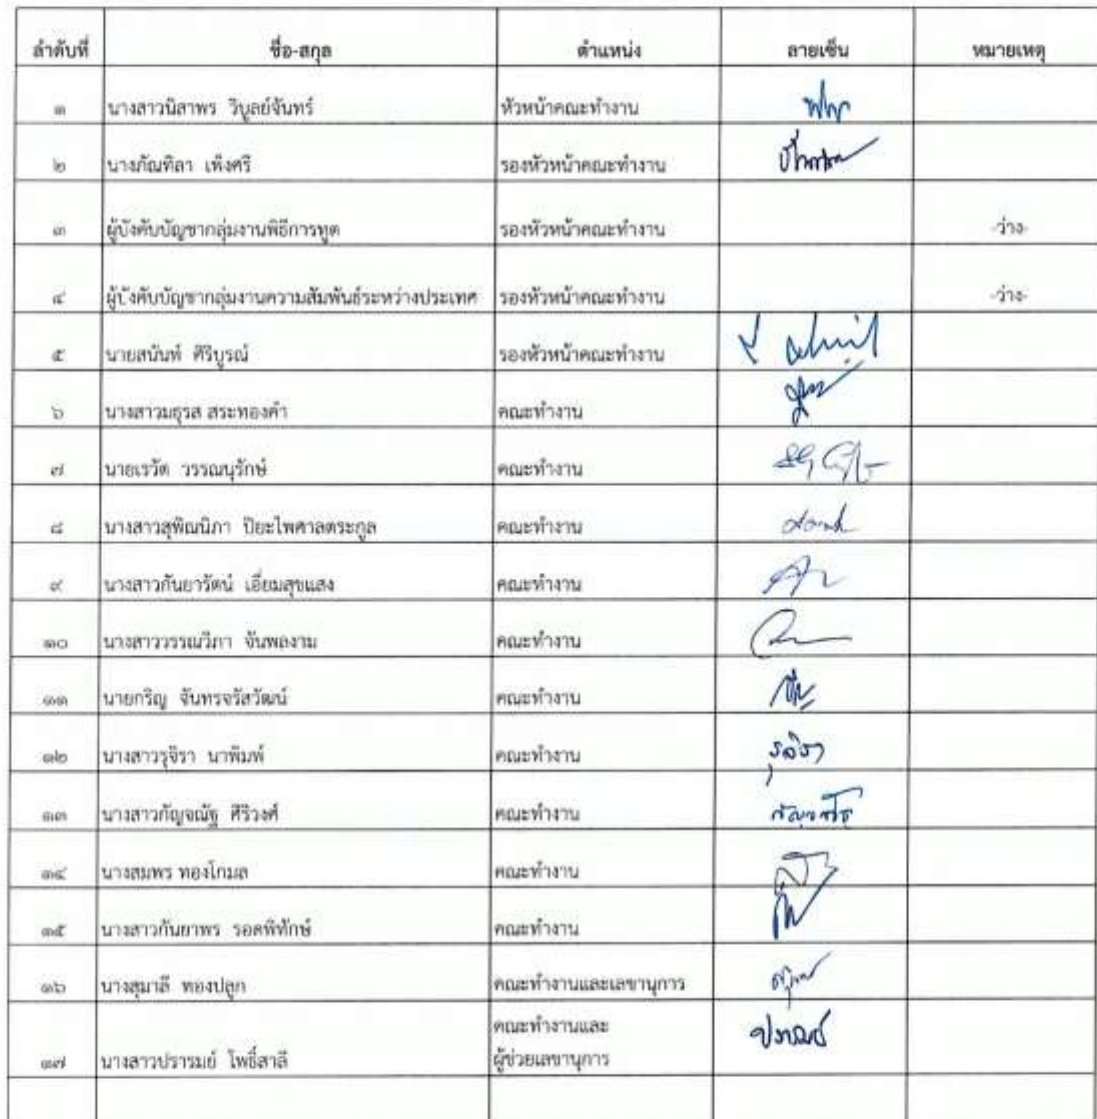 ลำดับที่ ชื่อ-สกุล ตำแหน่ง ลายเซ็น หมายเหตุ
๑ นางสาวนิสาพร วิบูลย์จันทร์ หัวหน้าคณะทำงาน
๒ นางภัณฑิลา เพ็งศรี รองหัวหน้าคณะทำงาน
๓ ผู้บังคับบัญชากลุ่มงานพิธีการทูต รองหัวหน้าคณะทำงาน -ว่าง-
๔ ผู้บังคับบัญชากลุ่มงานความสัมพันธ์ระหว่างประเทศ รองหัวหน้าคณะทำงาน -ว่าง-
๕ นายสนันท์ ศิริบูรณ์ รองหัวหน้าคณะทำงาน
๖ นางสาวมธุรส สระทองคำ คณะทำงาน
๗ นายเรวัต วรรณนุรักษ์ คณะทำงาน
๘ นางสาวสุพิณนิภา ปิยะไพศาลตระกูล คณะทำงาน
๙ นางสาวกันยารัตน์ เอี่ยมสุขแสง คณะทำงาน
๑๐ นางสาววรรณวิภา จันพลงาม คณะทำงาน
๑๑ นายกริญ จันทรจรัสวัฒน์ คณะทำงาน
๑๒ นางสาวรุจิรา นาพิมพ์ คณะทำงาน รุจิรา
๑๓ นางสาวกัญจณัฐ ศิริวงศ์ คณะทำงาน
๑๔ นางสมพร ทองโกมล คณะทำงาน
๑๕ นางสาวกันยาพร รอดพิทักษ์ คณะทำงาน
๑๖ นางสุมาลี ทองปลูก คณะทำงานและเลขานุการ
คณะทำงานและ
๑๗ นางสาวปรารมย์ โพธิ์สาลี ผู้ช่วยเลขานุการ